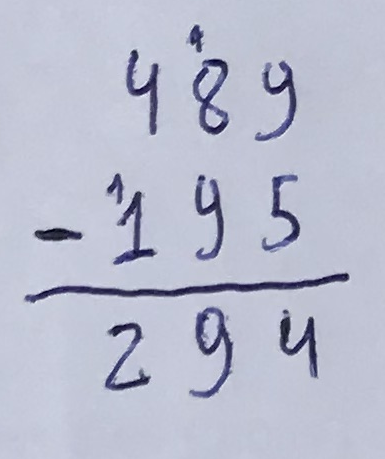 1
489
- 1195
294